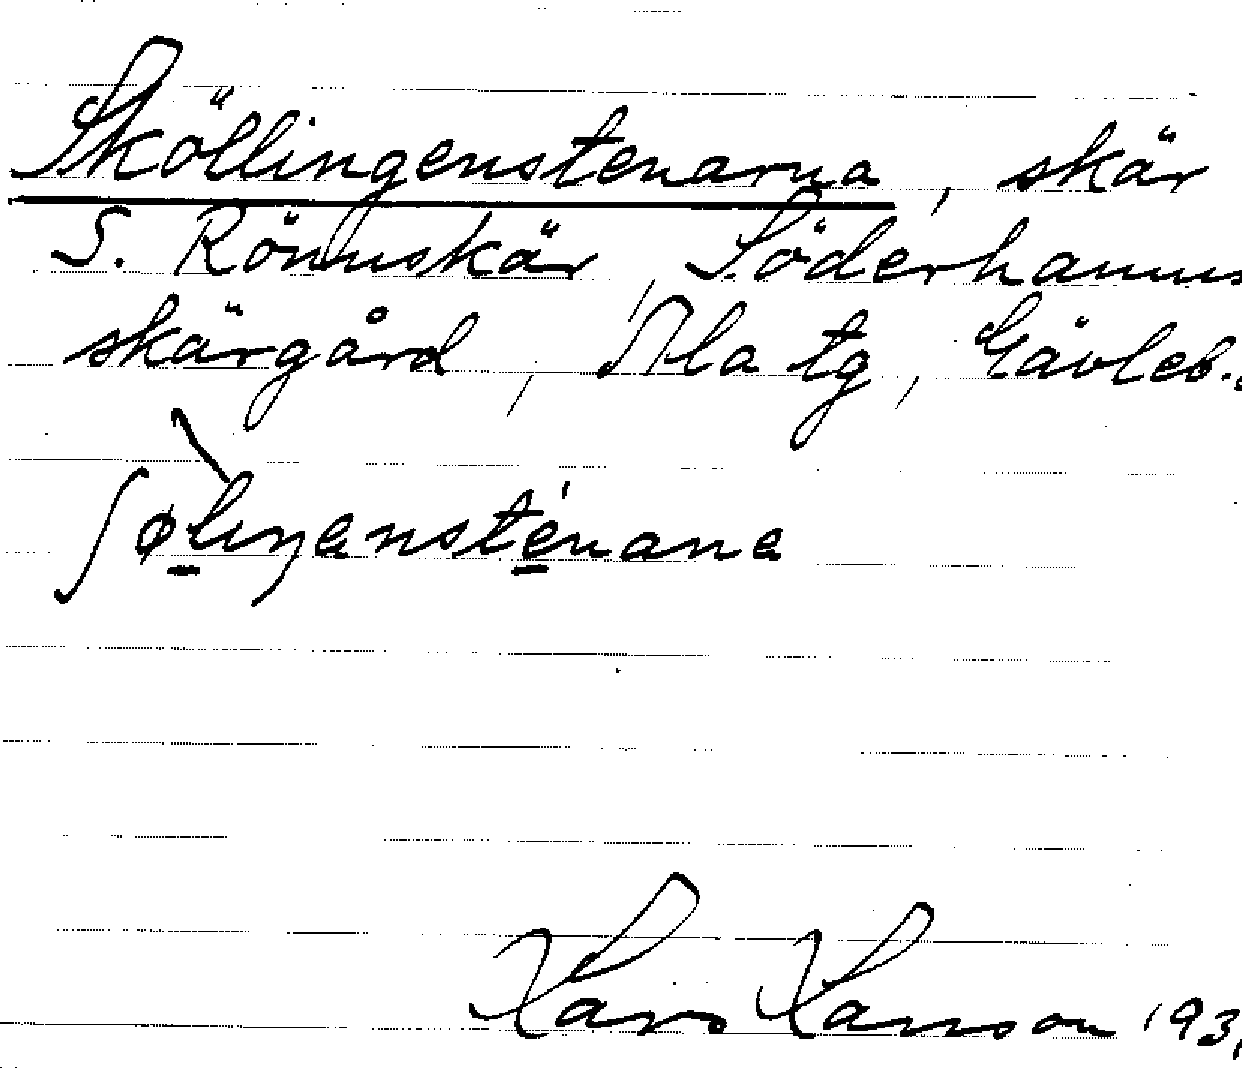 Sköllingenstenarna, skär
S. Rönnskär, Söderhamns
skärgård, Ala tg, Gävleb.
Lars Hansson 193